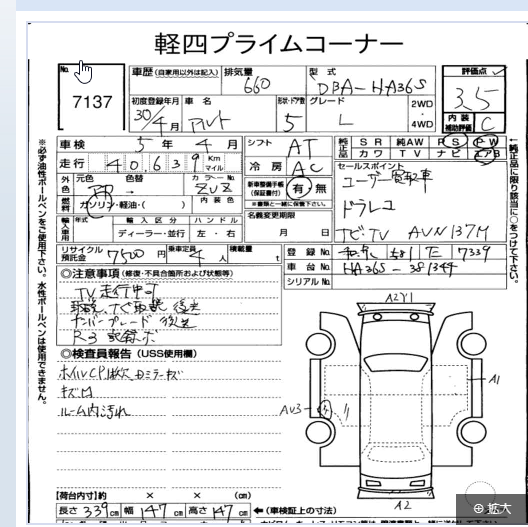 軽四プライムコーナー
No.
7137
車歴 (自家用以外は記入)
排気量
660
型式
DBA-HA36S
評価点
3.5
初度登録年月
30/4月
車名
アルト
形状・ドア数
5
グレード
L
2WD
・
4WD
内装
補助評価
C
車検
5年4月
シフト
AT
純正品
SR 純AW PS PW
カワ TV ナビ エアB
走行
40,639
Km
マイル
冷房
AC
セールスポイント
ユーザー買取車
ドラレコ
ナビTV AVN137M
外色
元色
色替
カラーNo.
ZUZ
新車整備手帳
(保証書付)
有・無
※書類と一緒に保管下さい。
燃料
ガソリン・軽油・( )
内装色
名義変更期限
月 日
輸入車用
年式
輸入区分
ハンドル
ディーラー・並行
左・右
リサイクル
預託金
7500円
乗車定員
4人
積載量
t
登録No.
581 7339
車台No.
HA36S-381344
シリアルNo.
◎注意事項 (修復・不具合箇所および状態等)
TV走行中可
取説、ナビ取説 後送
ナンバープレート 後送
R3 記録ボ
◎検査員報告 (USS使用欄)
ホイルCP1枚欠 Dミラーキズ
キズ有
ルーム内汚れ
A2Y1
A1
AU3
A2
【荷台内寸】約 × × (cm)
長さ 339cm 幅 147cm 高さ 147cm ←(車検証上の寸法)
※必ず油性ボールペンをご使用下さい。水性ボールペンは使用できません。
←純正品に限り該当に○をつけて下さい。
拡大